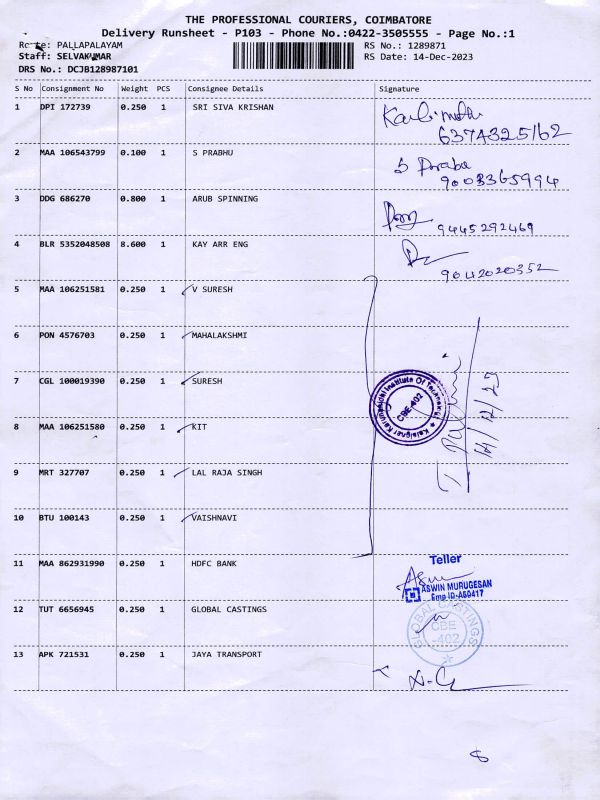 THE PROFESSIONAL COURIERS, COIMBATORE
Delivery Runsheet - P103 - Phone No.:0422-3505555 - Page No.:1
Route: PALLAPALAYAM RS No.: 1289871
Staff: SELVAKUMAR RS Date: 14-Dec-2023
DRS No.: DCJB128987101
S No Consignment No Weight PCS Consignee Details Signature
1 DPI 172739 0.250 1 SRI SIVA KRISHAN
6374325162
2 MAA 106543799 0.100 1 S PRABHU
S Praba
9003365994
3 DDG 686270 0.800 1 ARUB SPINNING
9445292469
4 BLR 5352048508 8.600 1 KAY ARR ENG
9042020352
5 MAA 106251581 0.250 1 V SURESH
6 PON 4576703 0.250 1 MAHALAKSHMI
7 CGL 100019390 0.250 1 SURESH
Kalaignar Karunanidhi Institute Of Technology
CBE-402
14/12/23
8 MAA 106251580 0.250 1 KIT
9 MRT 327707 0.250 1 LAL RAJA SINGH
10 BTU 100143 0.250 1 VAISHNAVI
11 MAA 862931990 0.250 1 HDFC BANK
Teller
ASWIN MURUGESAN
Emp ID-A50417
12 TUT 6656945 0.250 1 GLOBAL CASTINGS
GLOBAL CASTINGS
CBE
-402
13 APK 721531 0.250 1 JAYA TRANSPORT
8